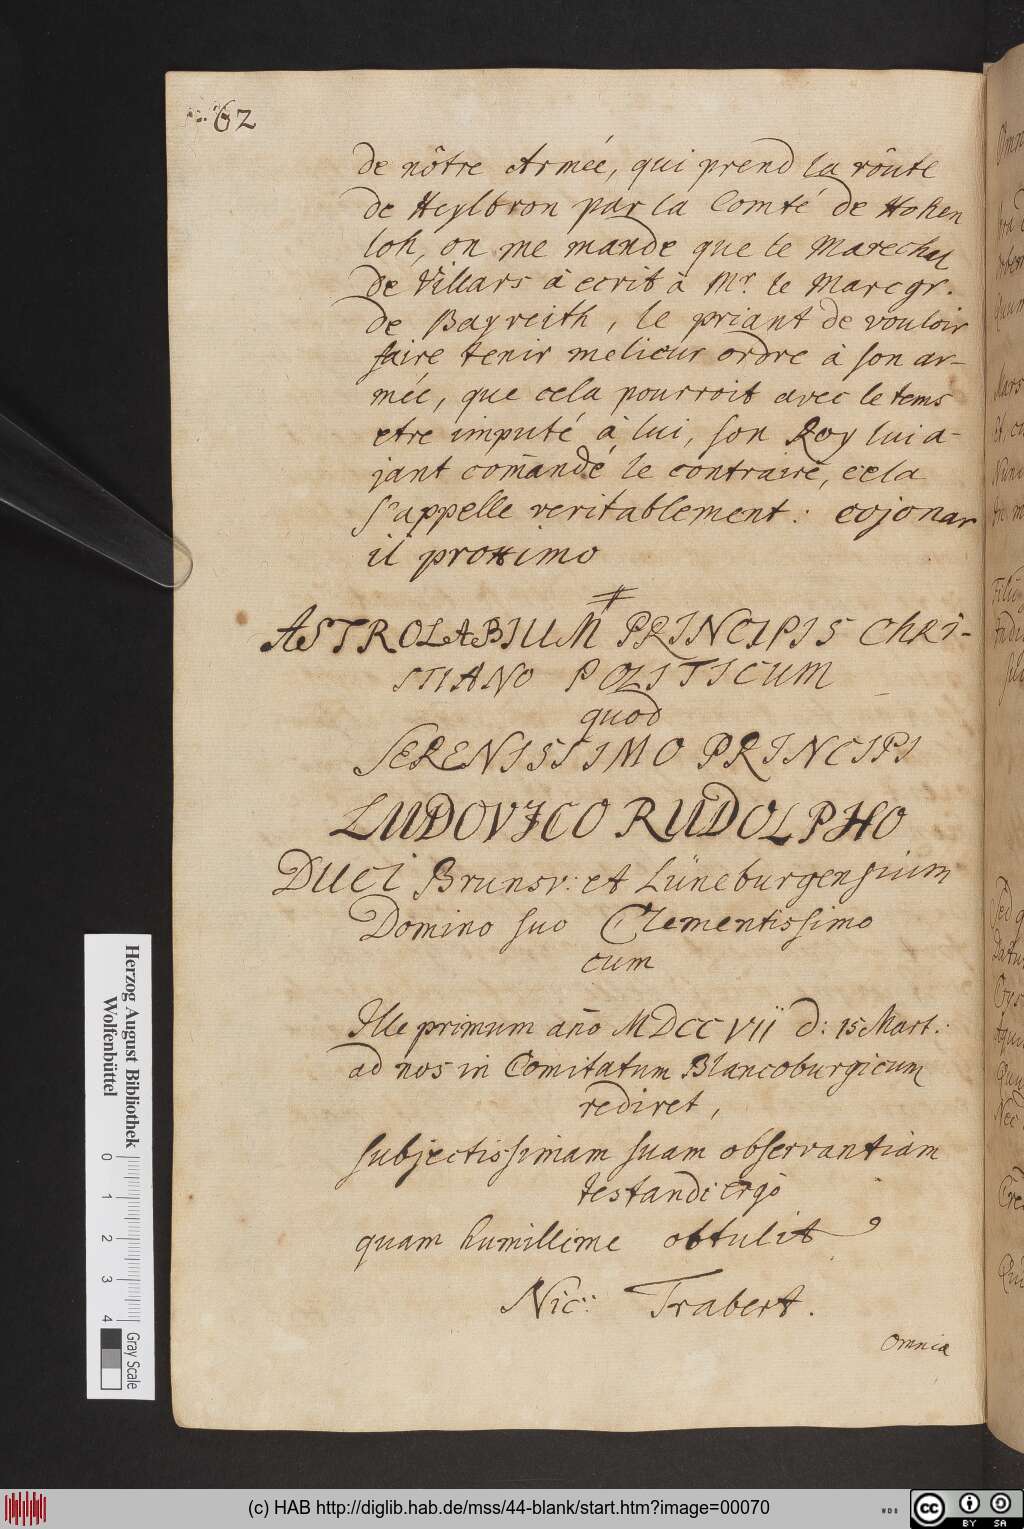 62
de nôtre Armée, qui prend la rôute
de Heylbron par la Comté de Hohen
loh, on me mande que le Marechal
de Villars à ecrit à Mr. le Marcgr.
de Bayreith, le priant de vouloir
faire tenir melieur ordre à son ar-
mée, que cela pourroit avec le tems
etre imputé à lui, son Roy lui a-
jant com̄andé le contraire, cela
s'appelle veritablement: cojonar
il proximo
ASTROLABIUM PRINCIPIS CHRI-
STIANO POLITICUM
quod
SERENISSIMO PRINCIPI
LUDOVICO RUDOLPHO
DUCI Brunsv: et Lüneburgensium
Domino suo Clementissimo
cum
Ille primum año MDCCVII d: 15 Mart.
ad nos in Comitatum Blancoburgicum
rediret,
subjectissimam suam observantiam
testandi ergò
quam humillime obtulit
Nic: Trabert.
Omnia
Herzog August Bibliothek
Wolfenbüttel
0 1 2 3 4
Gray Scale
(c) HAB http://diglib.hab.de/mss/44-blank/start.htm?image=00070
WDB
cc BY SA